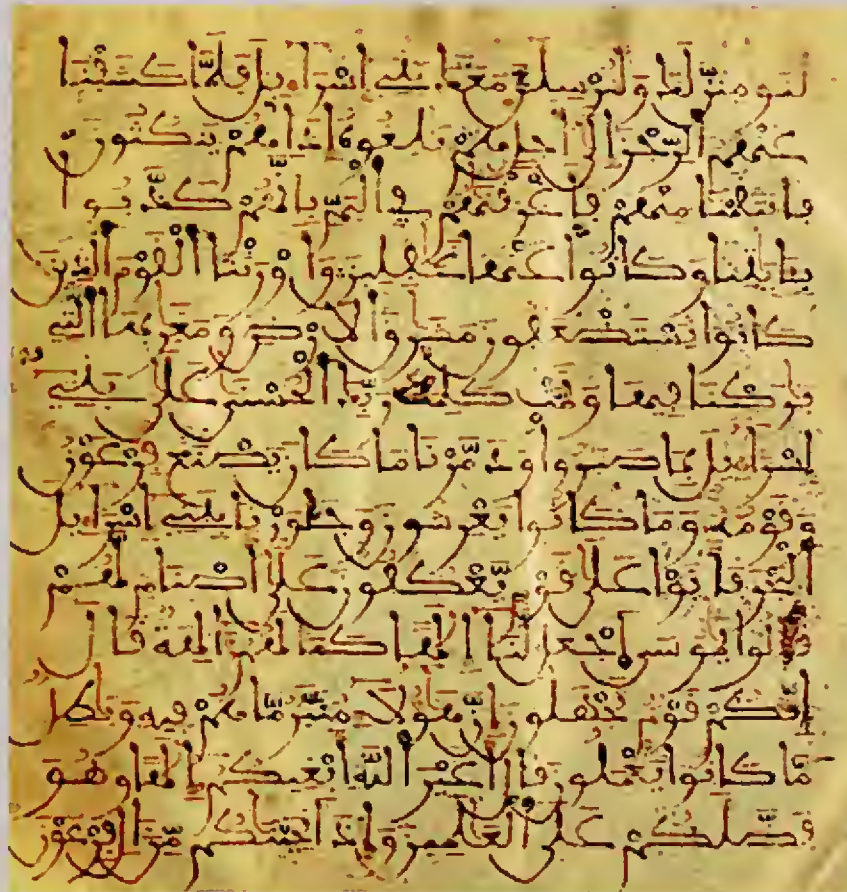 لنومنن لك ولنرسلن معك بني اسراءيل فلما كشفنا
عنهم الرجز الى اجل هم بلغوه اذا هم ينكثون
فانتقمنا منهم فاغرقنهم في اليم بانهم كذبوا
بايتنا وكانوا عنها غفلين واورثنا القوم الذين
كانوا يستضعفون مشرق الارض ومغربها التي
بركنا فيها وتمت كلمت ربك الحسنى على بني
اسراءيل بما صبروا ودمرنا ما كان يصنع فرعون
وقومه وما كانوا يعرشون وجوزنا ببني اسراءيل
البحر فاتوا على قوم يعكفون على اصنام لهم
قالوا يموسى اجعل لنا الها كما لهم الهة قال
انكم قوم تجهلون ان هولاء متبر ما هم فيه وبطل
ما كانوا يعملون قال اغير الله ابغيكم الها وهو
فضلكم على العلمين واذ انجينكم من ال فرعون